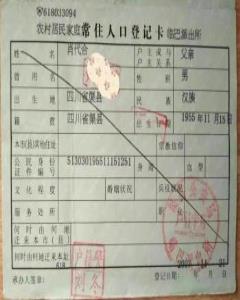 618033094
农村居民家庭 常住人口登记卡 临巴派出所
姓名 肖代合 户主或与户主关系 父亲
曾用名 性别 男
出生地 四川省渠县 民族 汉族
籍贯 四川省渠县 出生日期 1955年11月15日
本市(县)其他住址 宗教信仰
公民身份证件编号 513030195511151251 身高 血型
文化程度 婚姻状况 兵役状况
服务处所
何时由何地迁来本市(县)
何时由何地迁来本址
承办人签章: 登记日期: 年 月 日